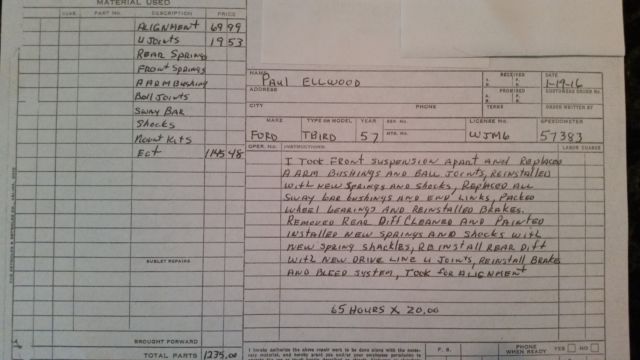 MATERIAL USED
QUAN. PART NO. DESCRIPTION PRICE
ALIGNMENT 69 99
U JOINTS 19 53
REAR SPRINGS
FRONT SPRINGS
A ARM BUSHING
BALL JOINTS
SWAY BAR
SHOCKS
MOUNT KITS
ECT 1145 48
SUBLET REPAIRS
BROUGHT FORWARD
TOTAL PARTS 1235.00
NAME PAUL ELLWOOD
RECEIVED A.M. P.M.
DATE 1-19-16
ADDRESS
PROMISED A.M. P.M.
CUSTOMERS ORDER NO.
CITY PHONE TERMS ORDER WRITTEN BY
MAKE TYPE OR MODEL YEAR SER. NO. LICENSE NO. SPEEDOMETER
FORD TBIRD 57 MTR. NO. WJM6 57383
OPER. NO. INSTRUCTIONS: LABOR CHARGE
I TOOK FRONT SUSPENSION APART AND REPLACED
A ARM BUSHINGS AND BALL JOINTS, REINSTALLED
WITH NEW SPRINGS AND SHOCKS, REPLACED ALL
SWAY BAR BUSHINGS AND END LINKS, PACKED
WHEEL BEARINGS AND REINSTALLED BRAKES.
REMOVED REAR DIFF CLEANED AND PAINTED
INSTALLED NEW SPRINGS AND SHOCKS WITH
NEW SPRING SHACKLES, REINSTALL REAR DIFF
WITH NEW DRIVE LINE U JOINTS, REINSTALL BRAKES
AND BLEED SYSTEM, TOOK FOR ALIGNMENT
65 HOURS X 20.00
I hereby authorize the above repair work to be done along with the neces-
sary material, and hereby grant you and/or your employees permission to
P. B.
PHONE WHEN READY YES NO